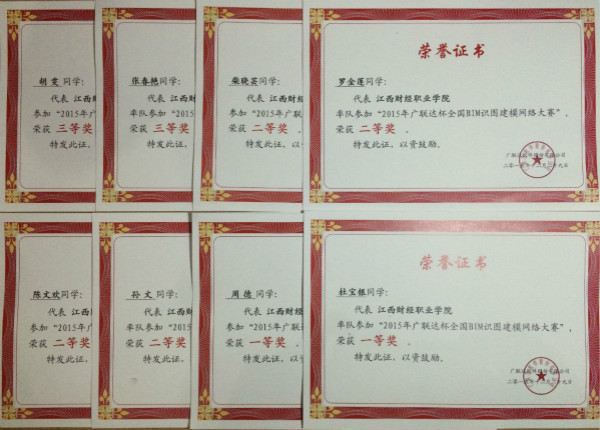 胡雯同学:
代表 江西财经
参加“2015年广
荣获 三等奖
特发此证,
张春艳同学:
代表 江西财经
率队参加“2015
荣获 三等奖
特发此证,
柴晓芸同学:
代表 江西财
参加“2015年广联达
荣获 二等奖 。
特发此证,以
荣誉证书
罗金莲同学:
代表 江西财经职业学院
率队参加“2015年广联达杯全国BIM识图建模网络大赛”,
荣获 二等奖 。
特发此证,以资鼓励。
二零一五年十二月二十九日
陈文欢同学:
代表 江西财经
参加“2015年广
荣获 二等奖
特发此证,
孙文同学:
代表 江西财
参加“2015年广
荣获 二等奖
特发此证,
周德同学:
代表 江西财经
参加“2015年广联达
荣获 一等奖 。
特发此证,以
荣誉证书
杜宝银同学:
代表 江西财经职业学院
率队参加“2015年广联达杯全国BIM识图建模网络大赛”,
荣获 一等奖 。
特发此证,以资鼓励。
二零一五年十二月二十九日